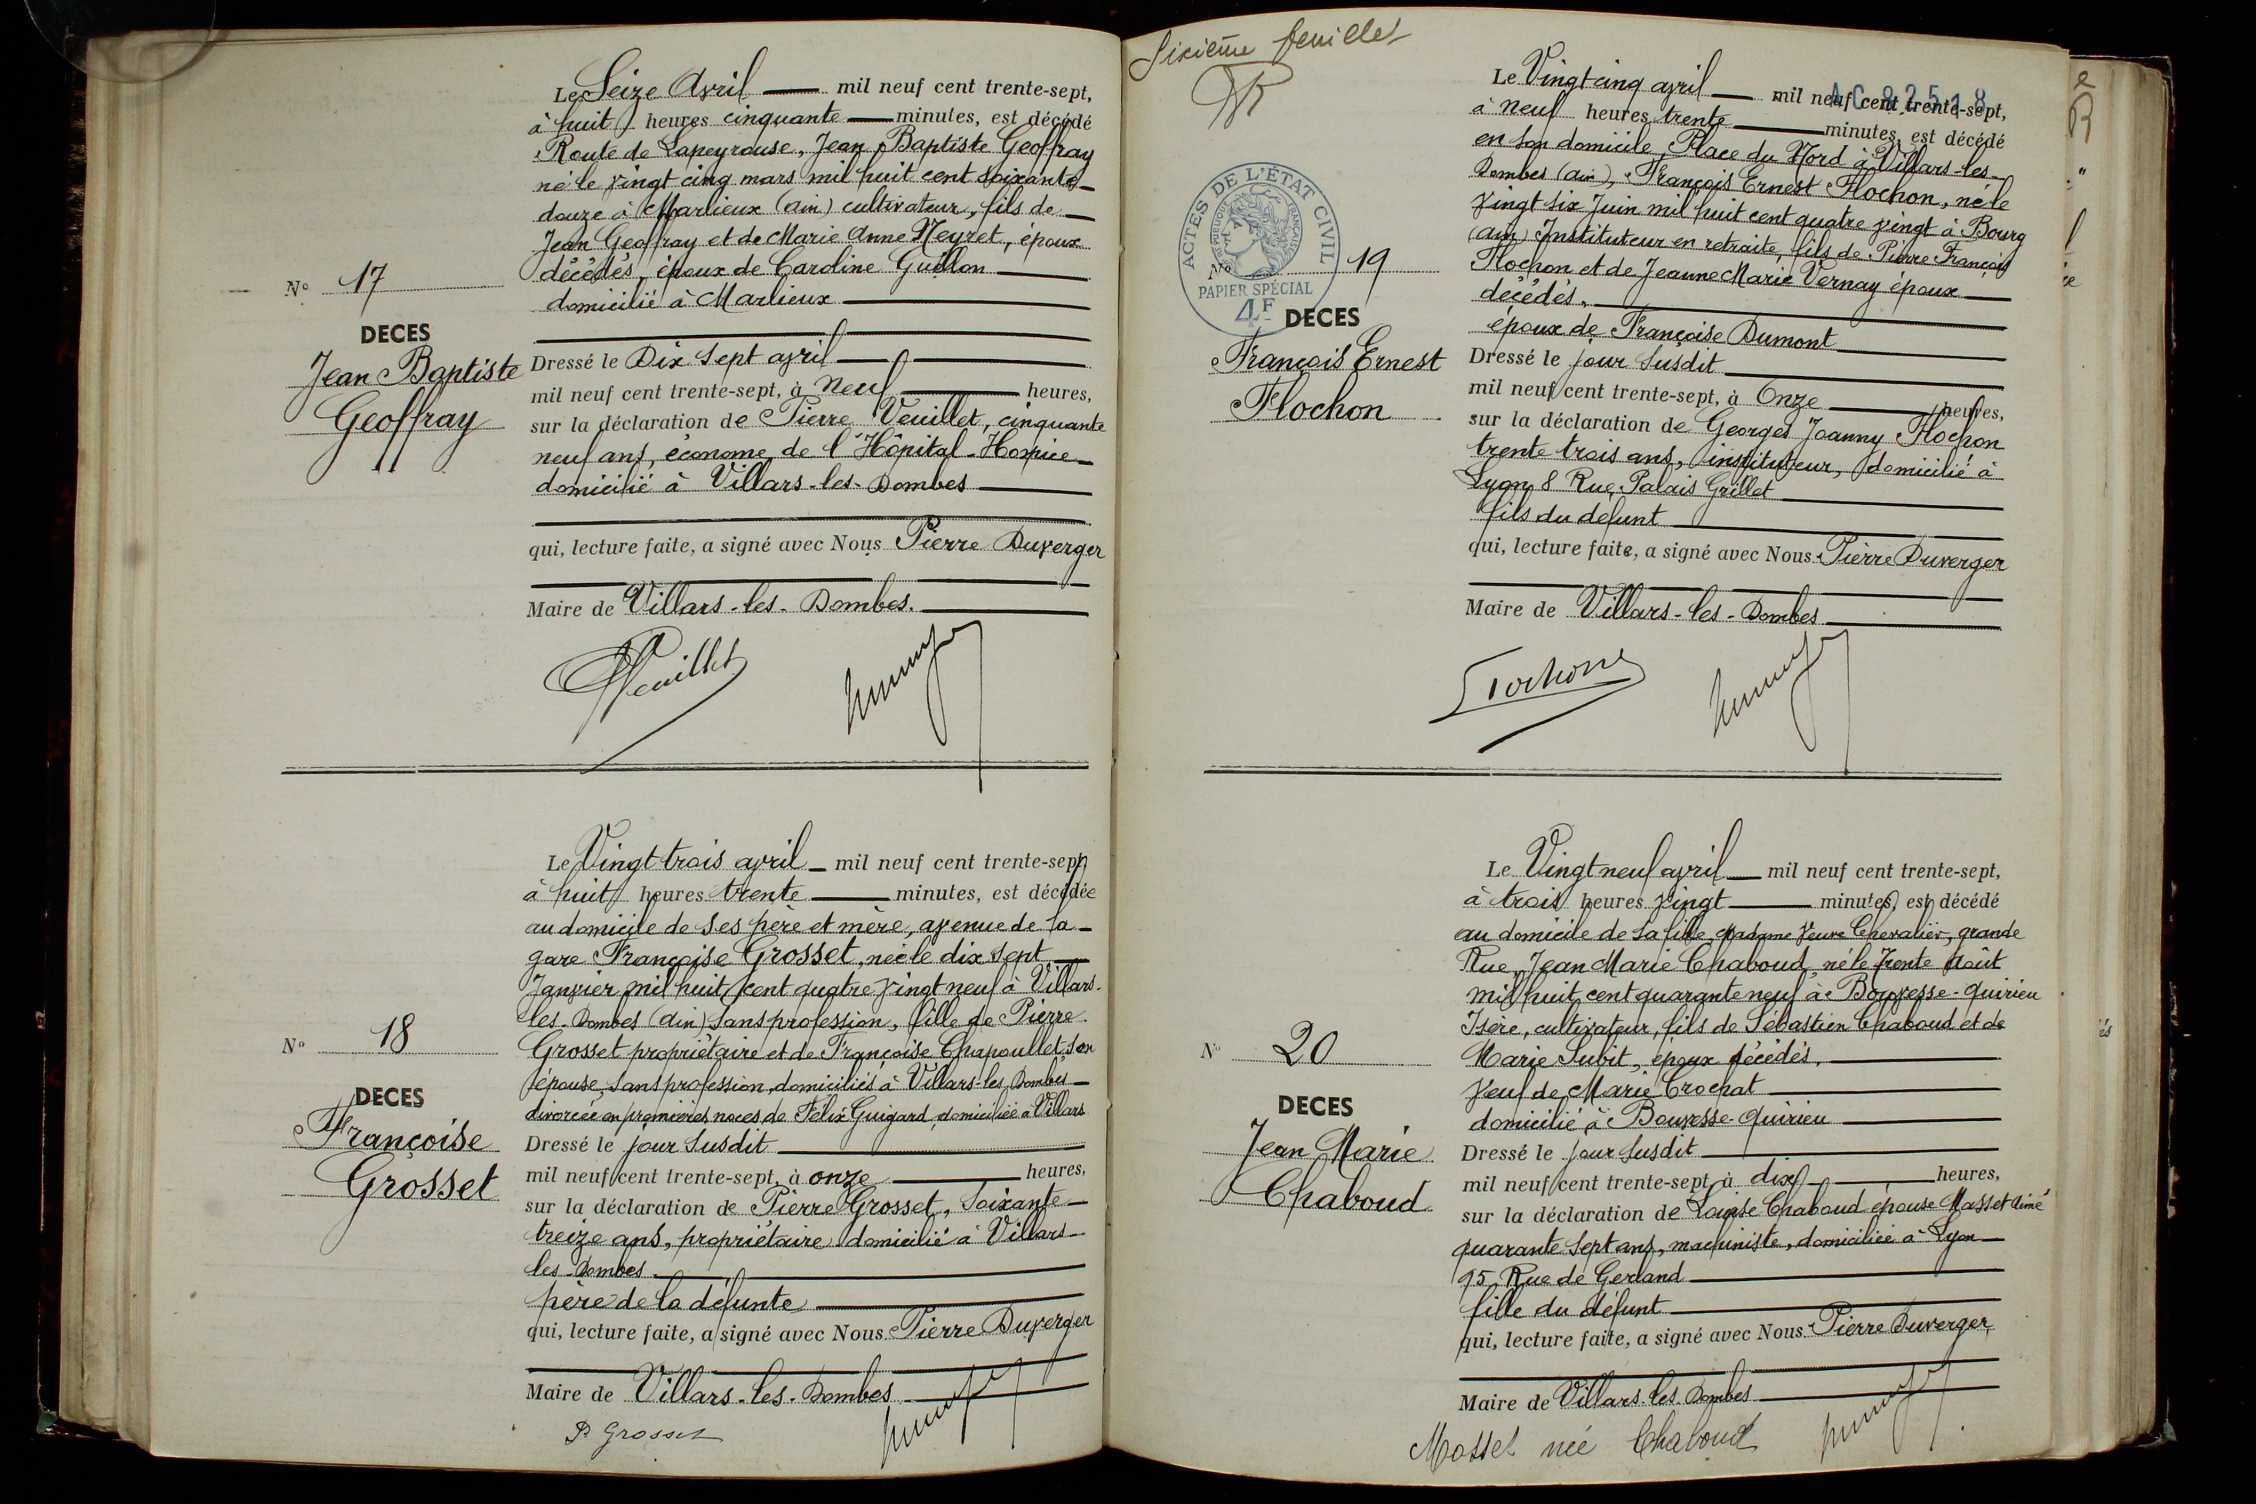 Le Seize Avril mil neuf cent trente-sept,
à huit heures cinquante minutes, est décédé
Route de Lapeyrouse, Jean Baptiste Geoffray
né le vingt cinq mars mil huit cent soixante
douze à Marlieux (Ain) cultivateur, fils de
Jean Geoffray et de Marie Anne Neyret, époux
décédés, époux de Caroline Guillon
domicilié à Marlieux
No 17
DECES
Jean Baptiste
Geoffray
Dressé le Dix Sept avril
mil neuf cent trente-sept, à Neuf heures,
sur la déclaration de Pierre Veuillet, cinquante
neuf ans, économe de l'Hôpital-Hospice
domicilié à Villars-les-Dombes
qui, lecture faite, a signé avec Nous Pierre Duverger
Maire de Villars-les-Dombes.
Veuillet
Le Vingt trois avril mil neuf cent trente-sept
à huit heures trente minutes, est décédée
au domicile de ses père et mère, avenue de la
gare Françoise Grosset, née le dix sept
Janvier mil huit cent quatre vingt neuf à Villars-
les-Dombes (Ain) sans profession, fille de Pierre
Grosset propriétaire et de Françoise Chapoullet, son
épouse, sans profession, domiciliés à Villars-les-Dombes
divorcée en premières noces de Félix Guigard, domiciliée à Villars
No 18
DECES
Françoise
Grosset
Dressé le jour susdit
mil neuf cent trente-sept, à onze heures,
sur la déclaration de Pierre Grosset, soixante
treize ans, propriétaire domicilié à Villars-
les-Dombes
père de la défunte
qui, lecture faite, a signé avec Nous Pierre Duverger
Maire de Villars-les-Dombes
P. Grosset
Sixième feuillet
Le Vingt cinq avril mil neuf cent trente-sept,
AC 82518
à Neuf heures trente minutes, est décédé
en son domicile, Place du Nord à Villars-les-
Dombes (Ain), François Ernest Flochon, né le
vingt six Juin mil huit cent quatre vingt à Bourg
(Ain) Instituteur en retraite, fils de Pierre François
Flochon et de Jeanne Marie Vernay époux
décédés.
époux de Françoise Dumont
ACTES DE L'ÉTAT CIVIL
RÉPUBLIQUE FRANÇAISE
PAPIER SPÉCIAL
4F
No 19
DECES
François Ernest
Flochon
Dressé le jour susdit
mil neuf cent trente-sept, à Onze heures,
sur la déclaration de Georges Joanny Flochon
trente trois ans, instituteur, domicilié à
Lyon 8 Rue Palais Grillet
fils du défunt
qui, lecture faite, a signé avec Nous Pierre Duverger
Maire de Villars-les-Dombes
Flochon
Le Vingt neuf avril mil neuf cent trente-sept,
à trois heures vingt minutes, est décédé
au domicile de sa fille, Madame Veuve Chevalier, grande
Rue, Jean Marie Chaboud, né le trente Août
mil huit cent quarante neuf à Bouvesse-Quirieu
Isère, cultivateur, fils de Sébastien Chaboud et de
Marie Subit, époux décédés.
veuf de Marie Crochat
domicilié à Bouvesse-Quirieu
No 20
DECES
Jean Marie
Chaboud
Dressé le jour susdit
mil neuf cent trente-sept, à dix heures,
sur la déclaration de Louise Chaboud épouse Masset Aimé
quarante sept ans, machiniste, domiciliée à Lyon
95 Rue de Gerland
fille du défunt
qui, lecture faite, a signé avec Nous Pierre Duverger
Maire de Villars-les-Dombes
Masset née Chaboud